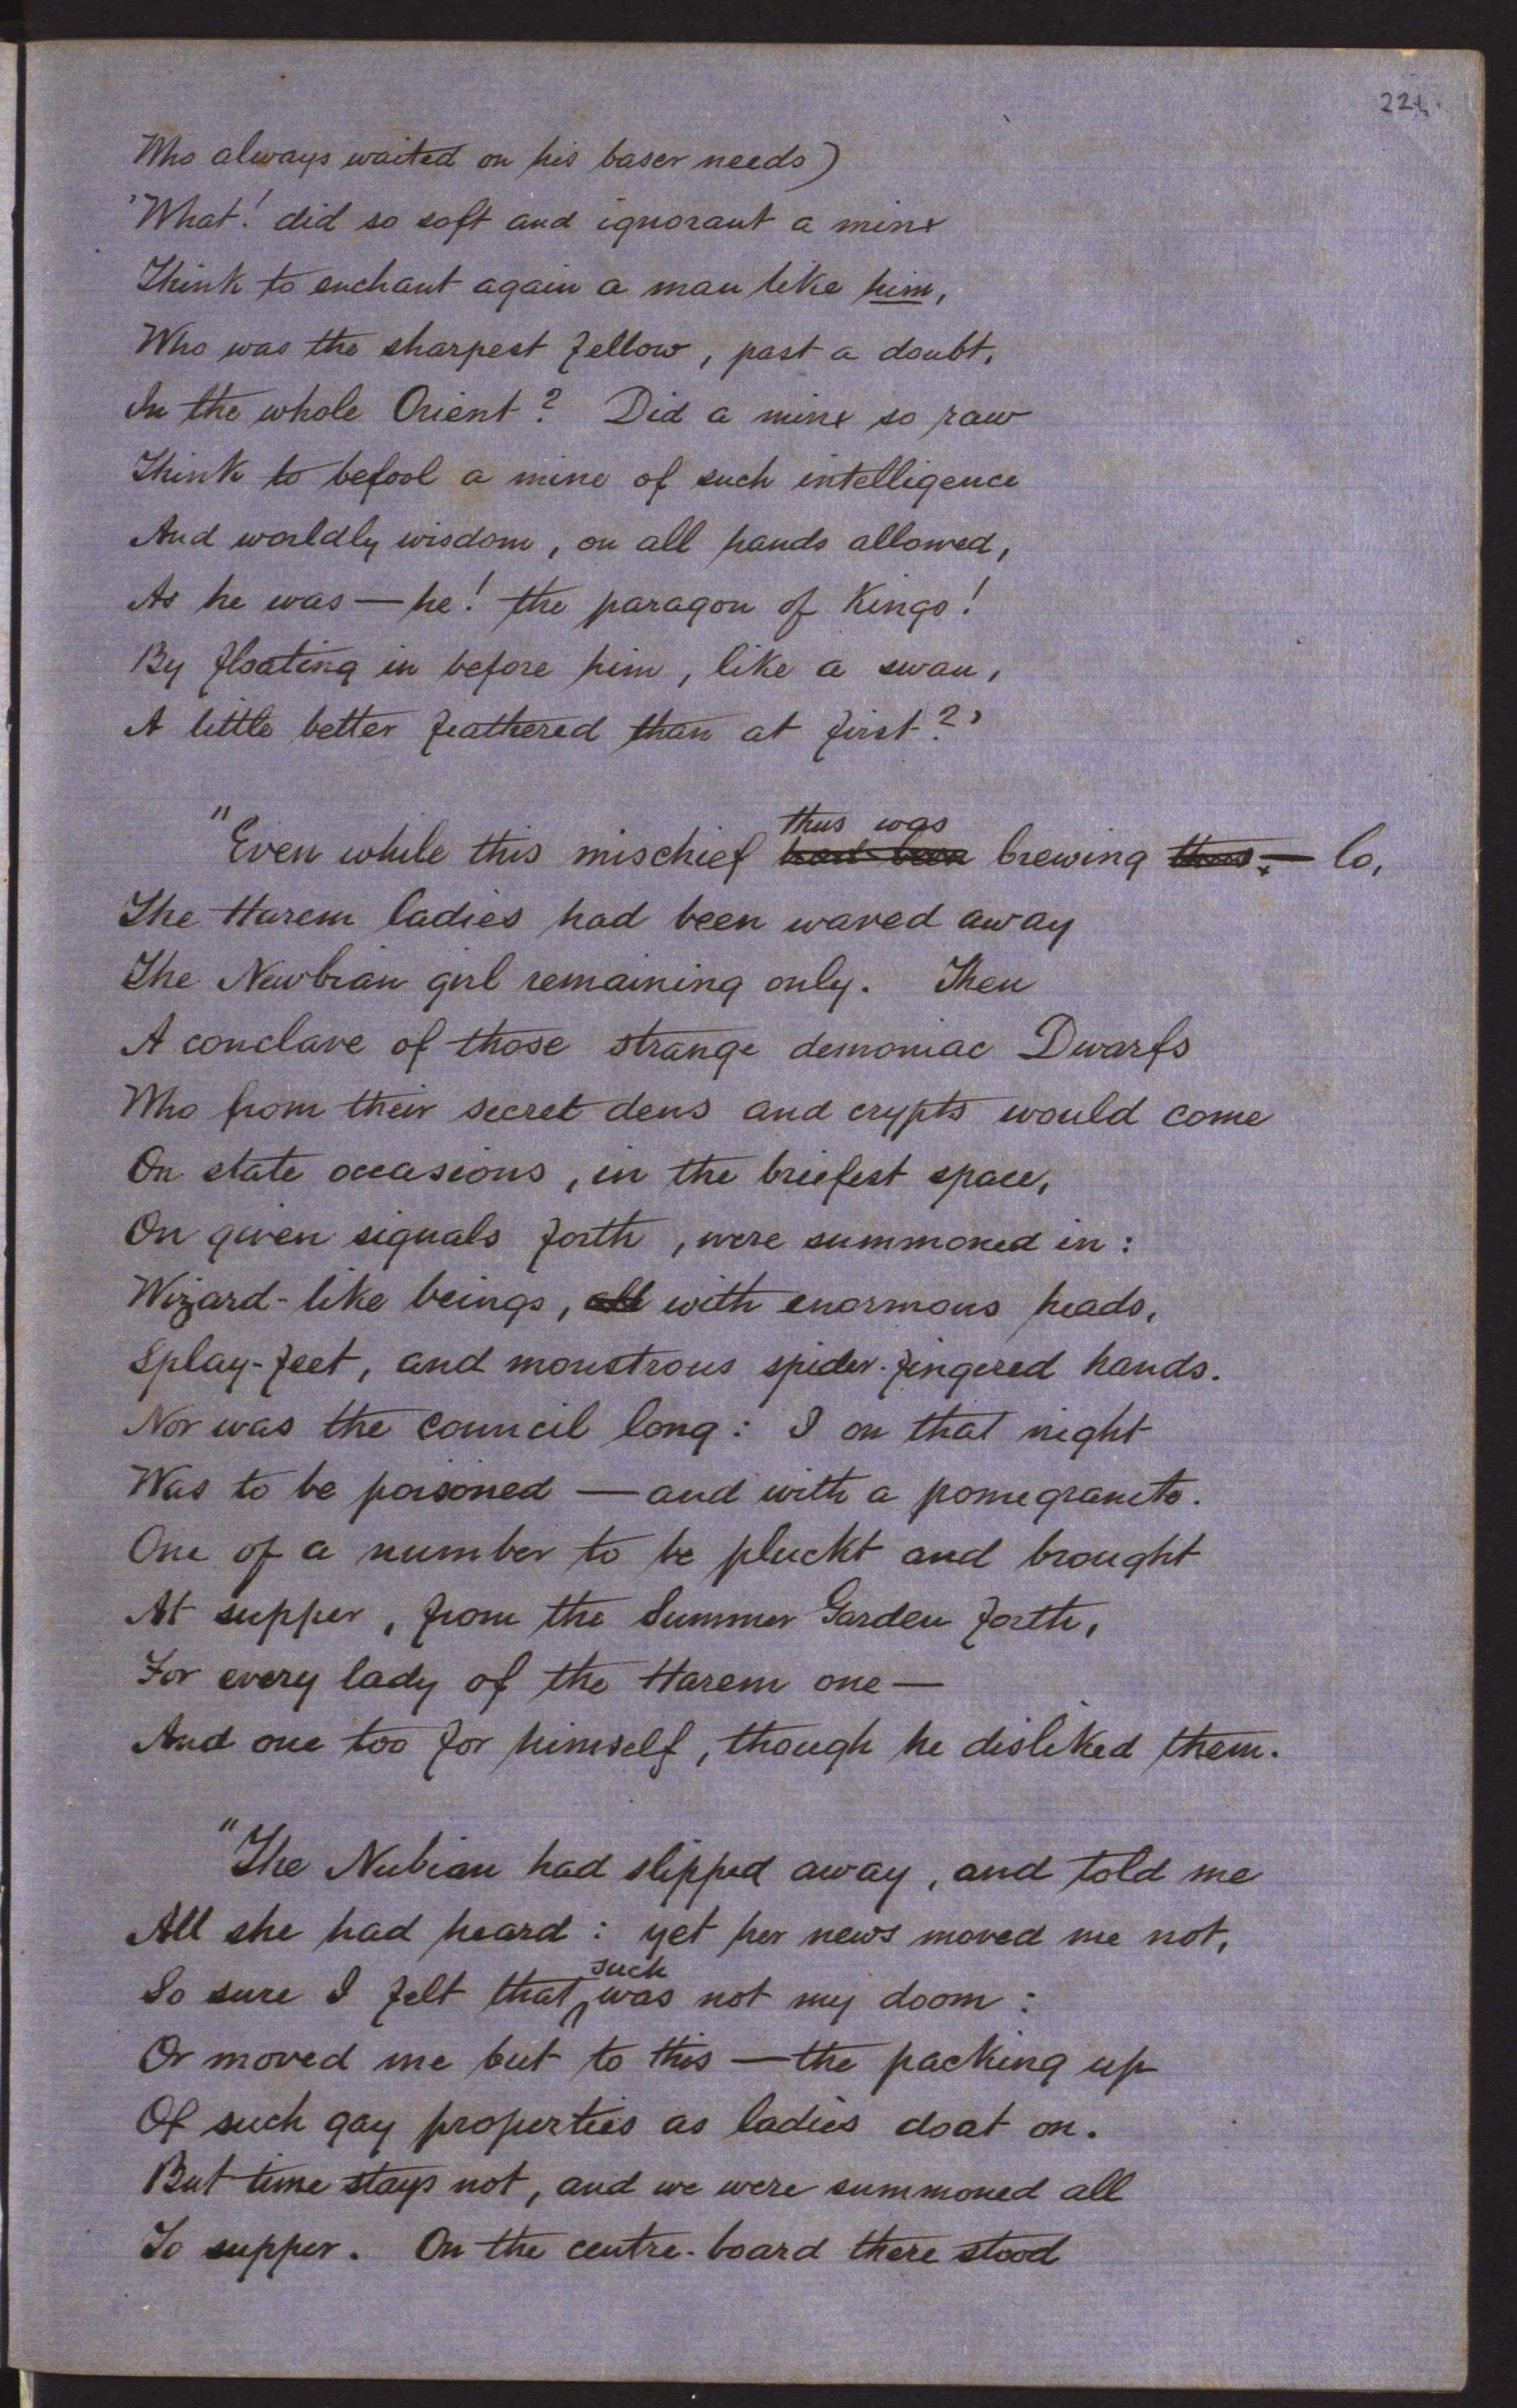 22
Who always waited on his baser needs)
'What! did so soft and ignorant a minx
Think to enchant again a man like him,
Who was the sharpest fellow, past a doubt,
In the whole Orient? Did a minx so raw
Think to befool a mine of such intelligence
And worldly wisdom, on all hands allowed,
As he was — he! the paragon of Kings!
By floating in before him, like a swan,
A little better feathered than at first?'
thus was
"Even while this mischief had been brewing thus — lo,
The Harem ladies had been waved away
The Newbian girl remaining only. Then
A conclave of those strange demoniac Dwarfs
Who from their secret dens and crypts would come
On state occasions, in the briefest space,
On given signals forth, were summoned in:
Wizard-like beings, all with enormous heads,
Splay-feet, and monstrous spider-fingered hands.
Nor was the council long: I on that night
Was to be poisoned — and with a pomegranate.
One of a number to be pluckt and brought
At supper, from the Summer Garden forth,
For every lady of the Harem one —
And one too for himself, though he disliked them.
"The Nubian had slipped away, and told me
All she had heard: yet her news moved me not,
such
So sure I felt that was not my doom:
Or moved me but to this — the packing up
Of such gay properties as ladies doat on.
But time stays not, and we were summoned all
To supper. On the centre-board there stood